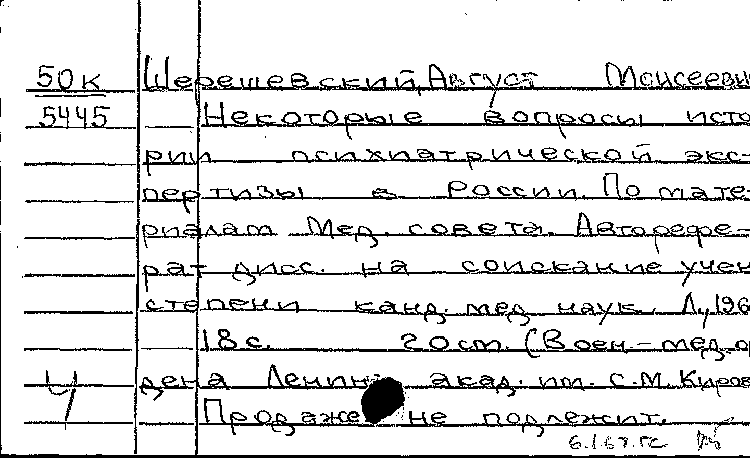 50к Шерешевский, Август Моисеевич
5445 Некоторые вопросы исто-
рии психиатрической экс-
пертизы в России. По мате-
риалам Мед. совета. Авторефе-
рат дисс. на соискание учен
степени канд. мед наук. Л., 196
18 с. 20 см. (Воен.-мед. ор
дена Ленина акад. им. С.М. Киров
Ч Продаже не подлежит.